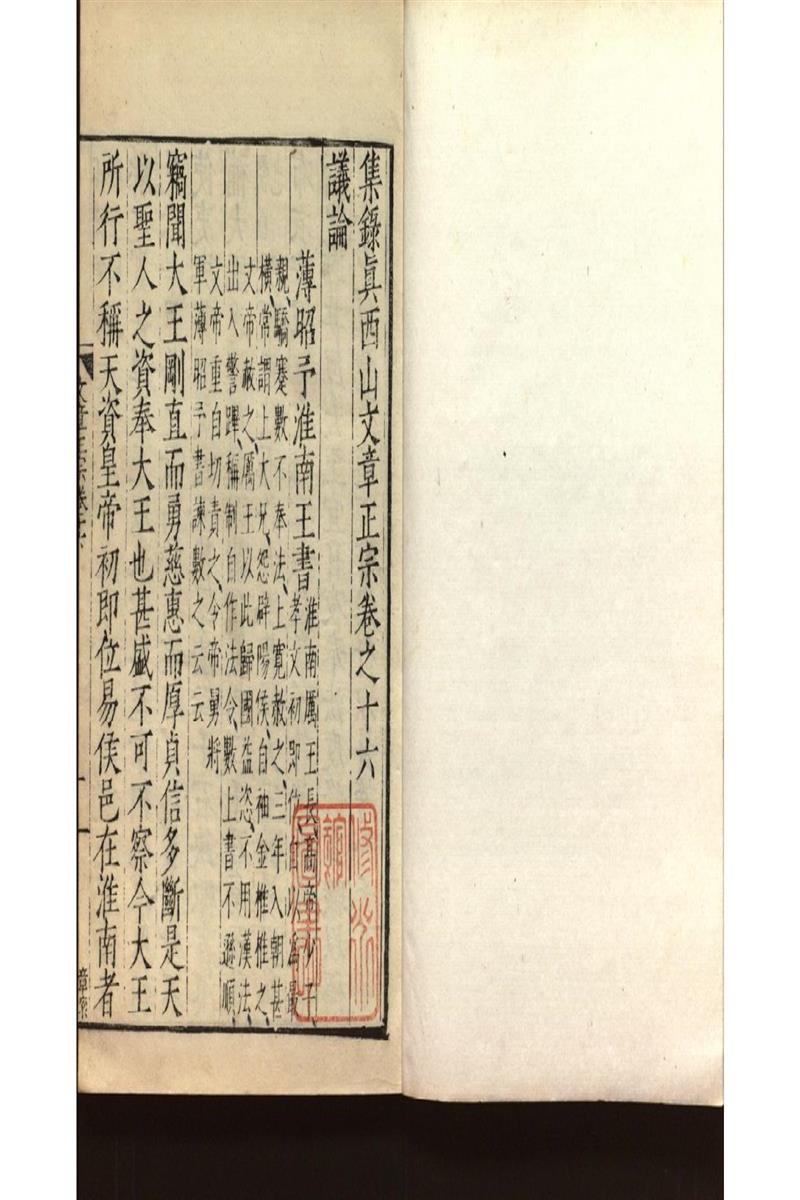 集錄眞西山文章正宗卷之十六
議論
薄昭予淮南王書
淮南厲王長高帝少子
孝文初即位自以為最
親驕蹇數不奉法上寬赦之三年入朝甚
橫常謂上大兄怨辟陽侯自袖金椎椎之
文帝赦之厲王以此歸國益恣不用漢法
出入警蹕稱制自作法令數上書不遜順
文帝重自切責之令帝舅將
軍薄昭予書諫數之云云
竊聞大王剛直而勇慈惠而厚貞信多斷是天
以聖人之資奉大王也甚盛不可不察今大王
所行不稱天資皇帝初即位易侯邑在淮南者